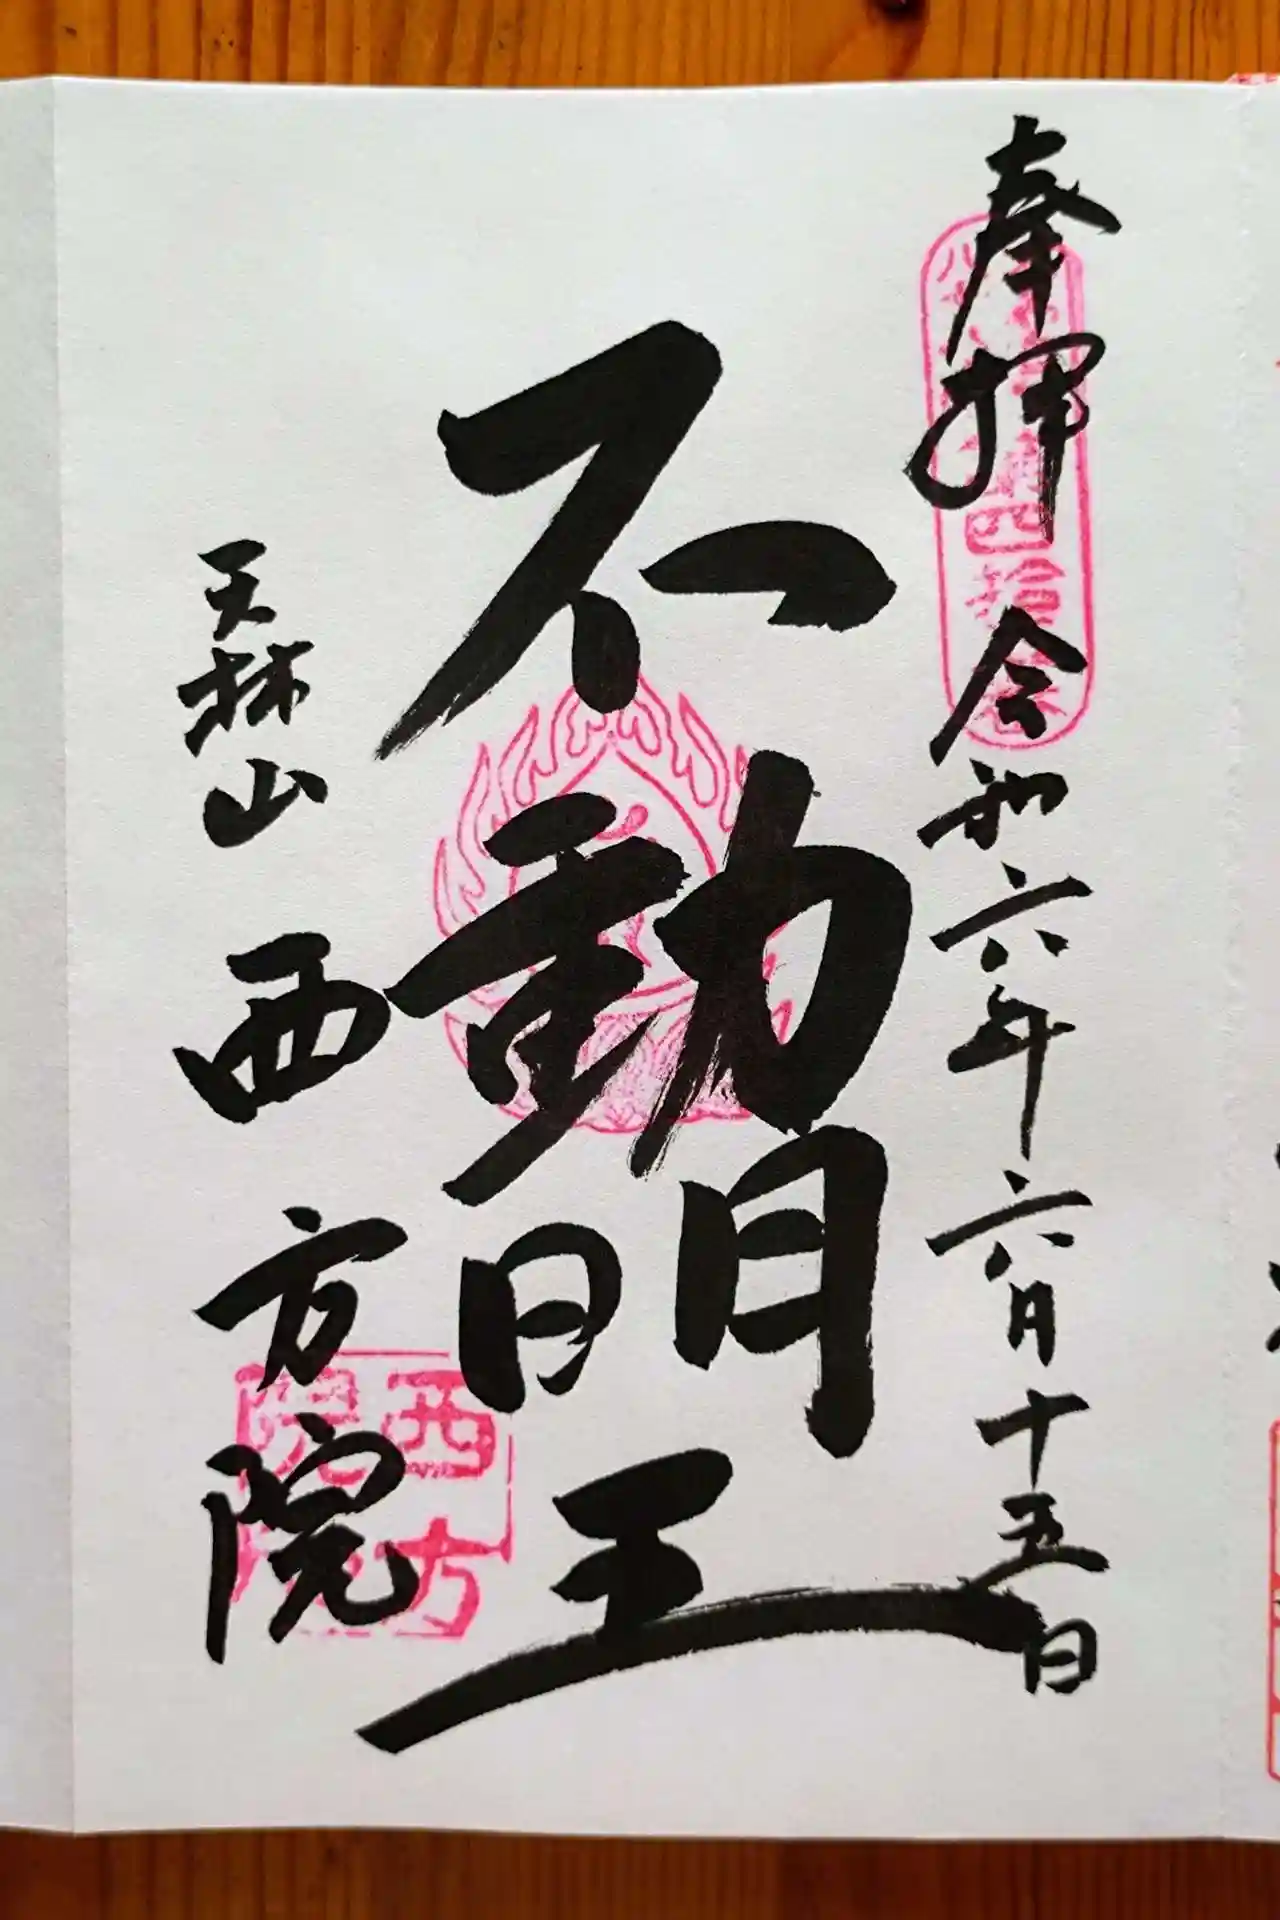 奉拝
令和六年六月十五日
不動明王
天林山
西方院
西方院